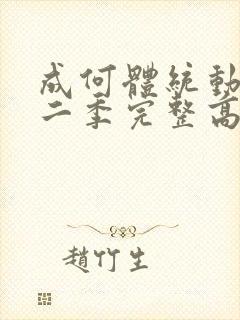 成何體統動
二季完整高
趙竹生